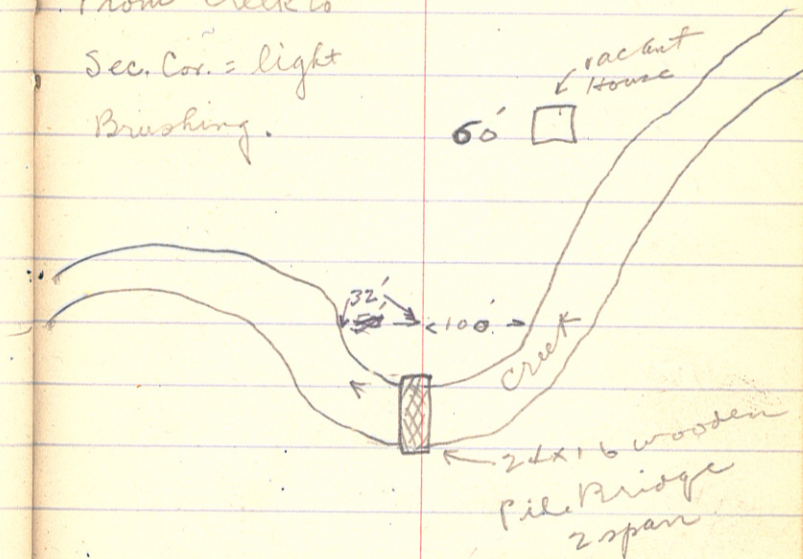 From Creek to
Sec. Cor. = light
Brushing.
vacant
House
60'
32'
50'
100'
Creek
24x16 wooden
Pile Bridge
2 span